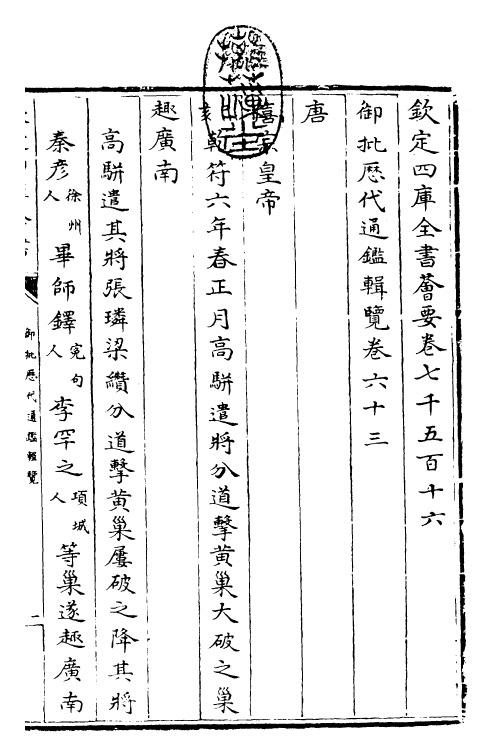 欽定四庫全書薈要卷七千五百十六
御批歷代通鑑輯覽卷六十三
唐
僖宗皇帝
亥乾符六年春正月高駢遣將分道擊黃巢大破之巢
趣廣南
高駢遣其將張璘梁纘分道擊黃巢屢破之降其將
秦彥徐州人畢師鐸宛句人李罕之項城人等巢遂趣廣南
御批歷代通鑑輯覽
一